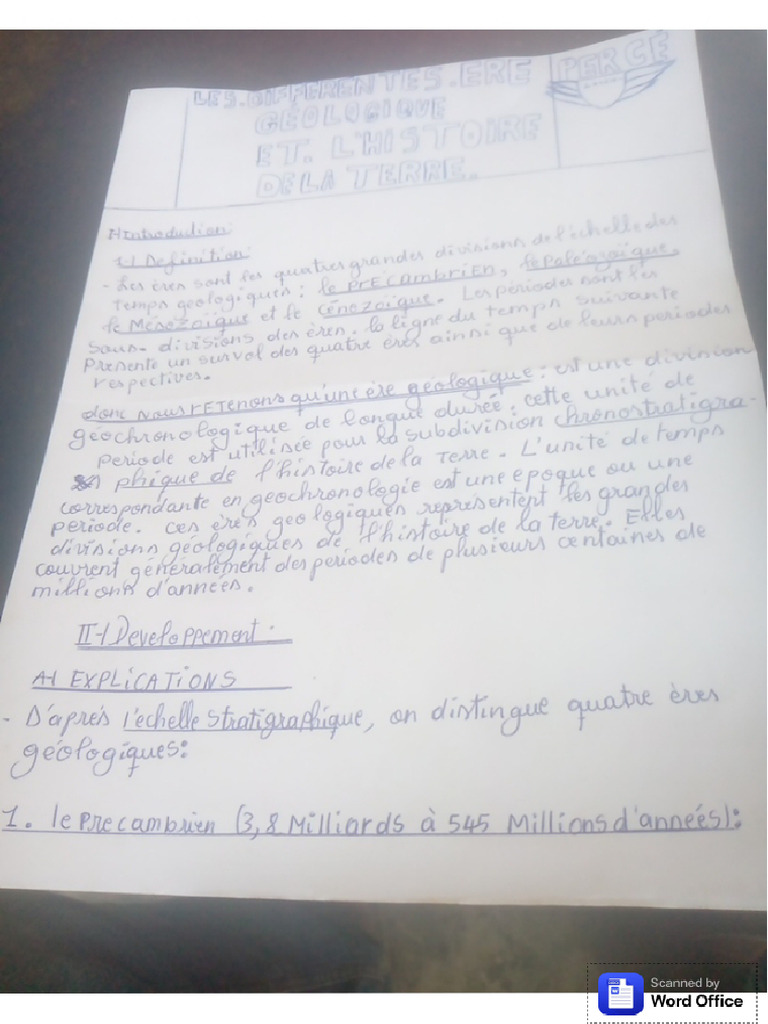 LES.DIFFERENTES.ERE
GÉOLOGIQUE
ET. L'HISTOIRE
DE LA TERRE.
PERCÉ
I-Introduction
1-) Definition
- Les ères sont les quatres grandes divisions de l'échelle des
temps géologiques : le PRÉCAMBRIEN, le Paléozoïque,
le Mésozoïque et le Cénozoïque. Les périodes sont les
sous-divisions des ères. la ligne du temps suivante
Présente un survol des quatre ères ainsi que de leurs periodes
respectives.
donc nous retenons qu'une ère géologique : est une division
géochronologique de longue durée ; cette unité de
periode est utilisée pour la subdivision chronostratigra-
phique de l'histoire de la Terre. L'unité de temps
correspondante en geochronologie est une epoque ou une
période. ces ères géologiques représentent les grandes
divisions géologiques de l'histoire de la terre. Elles
couvrent généralement des periodes de plusieurs centaines de
millions d'années.
II-) Developpement.
A-) EXPLICATIONS
- D'aprés l'echelle stratigraphique, on distingue quatre ères
géologiques:
1. le Precambrien (3,8 Milliards à 545 Millions d'années):
Scanned by
Word Office